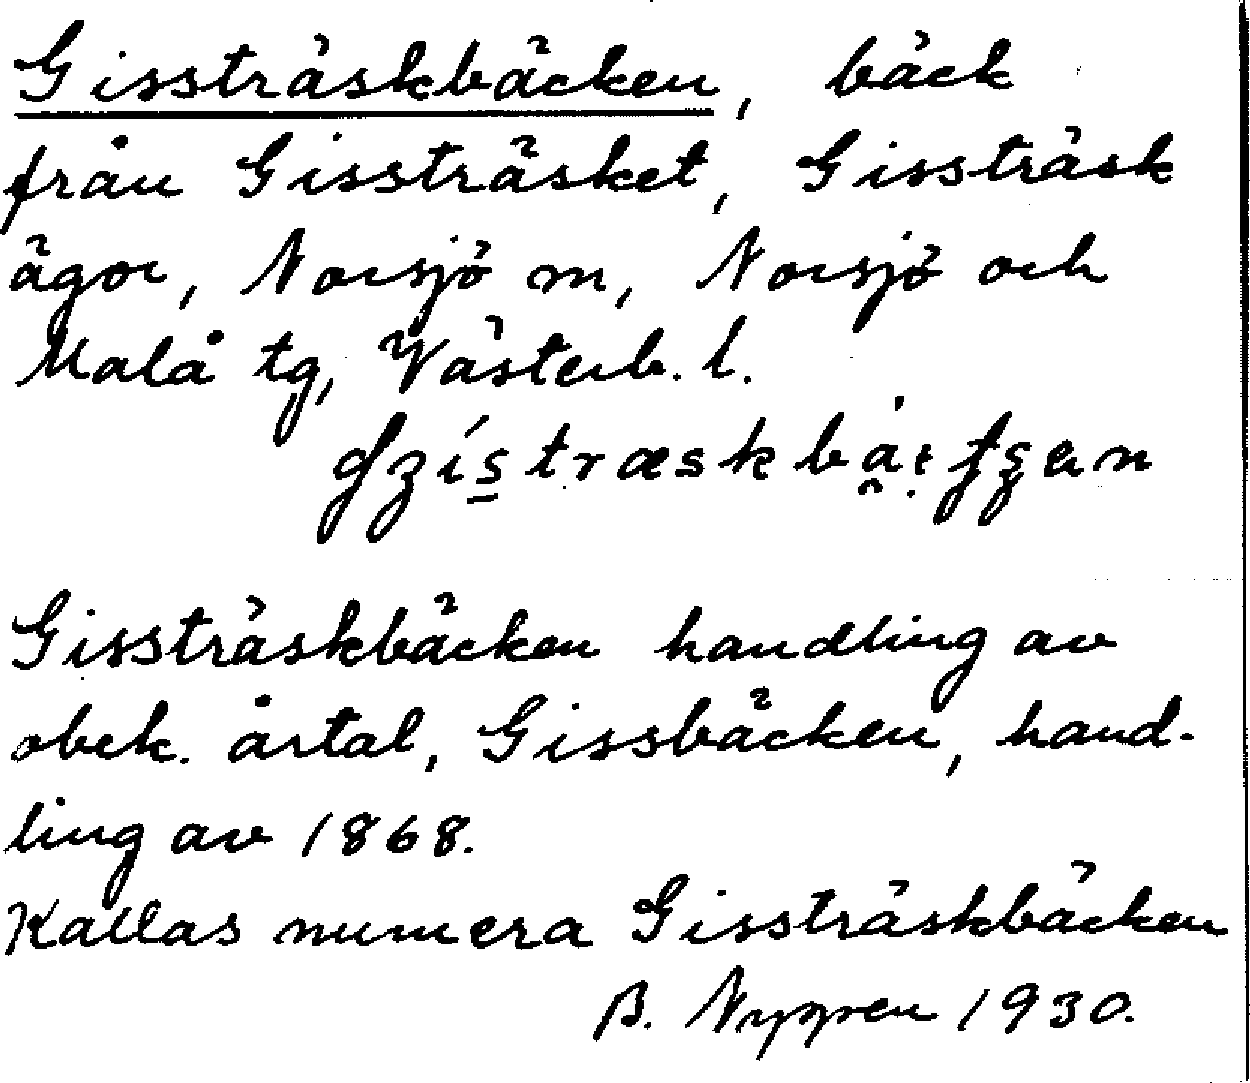 Gissträskbäcken, bäck
från Gissträsket, Gissträsk
ägor, Norsjö sn, Norsjö och
Malå tg, Västerb. l.
Gissträskbäcken handling av
obek. årtal, Gissbäcken, hand-
ling av 1868.
Kallas numera Gissträskbäcken
B. Nygren 1930.